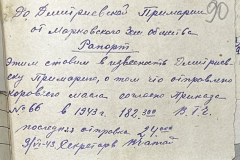 90
До Дмитриевской Примарии
от Марковского Зем общества
Рапорт
Этим ставим в известность Дмитриев-
ску Примарию, о том что отправлено
коровьего масла согласно Приказа
№ 66 в 1943 г. 182,300 В.Т.Г.
последняя отправка 24
9/VII-43 Секретарь